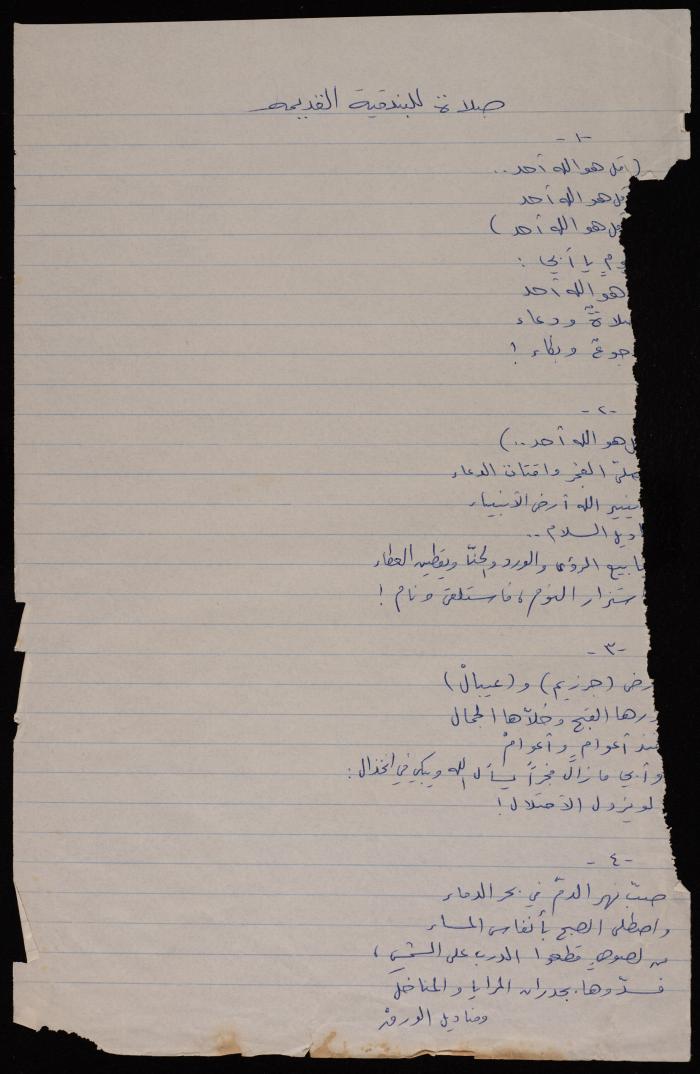 صلاة للبندقية القديمة
-١-
(قل هو الله أحد..
قل هو الله أحد
قل هو الله أحد)
يا أبي :
هو الله أحد
صلاةٌ ودعاء
جوعٌ وبكاء !
-٢-
هو الله أحد..)
صلّى الفجر واقتات الدعاء
ينير الله أرض الأنبياء
السلام ..
الرؤى والورد والحنّا ويقطين العطاء
النوم، فاستلقى ونام !
-٣-
(جرزيم) و(عيبالْ)
القبح وخلّاها الجمال
أعوامٍ وأعوامْ
وأبي مازال فجراً يسأل الله ويبكي في انخذال :
لو يزول الاحتلال !
-٤-
صبّ نهر الدمّ في بحر الدماء
واصطلى الصبح بأنفاس المساء
من لصوصٍ قطعوا الدرب على الشمسِ ،
فسدّوها بجدران المرايا والمناخل
ومناديل الورقْ